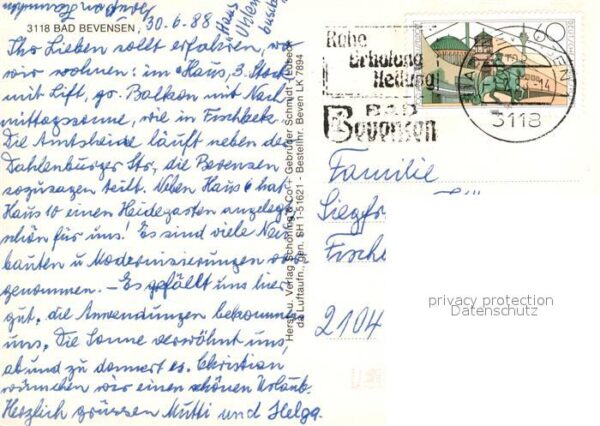 3118 BAD BEVENSEN, 30.6.88
"Haus
Uhlen
Ihr Lieben sollt erfahren, wo
wir wohnen: im Haus, 3. Stock
mit Lift, gr. Balkon mit Nach
mittagssonne, wie in Fischbek.
Die Amtsheide läuft neben der
Dahlenburger Str, die Bevensen
sozusagen teilt. Neben Haus 6 hat
Haus 10 einen Heidegarten angelegt
schön für uns! Es sind viele Neu
bauten u Modernisierungen vor
genommen. – Es gefällt uns hier
gut, die Anwendungen bekommen
uns. Die Sonne verwöhnt uns,
ab und zu donnert es. Christian
wünschen wir einen schönen Urlaub.
Herzlich grüssen Mutti und Helga.
Herst. u. Verlag Schöning & Co + Gebrüder Schmidt · Lübeck
da Luftaufn., Gen. SH 1-51621 - Bestellnr. Beven LK 7894
Ruhe
Erholung
Heilung
BAD
Bevensen
60
3118
Familie
Siegfr
Fische
2104
privacy protection
Datenschutz